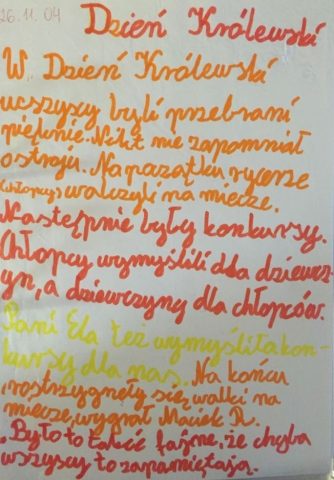 26.11.04
Dzień Królewski
W Dzień Królewski
wszyscy byli przebrani
pięknie. Nikt nie zapomniał
o stroju. Na początku rycerze
(chłopcy) walczyli na miecze.
Następnie były konkursy.
Chłopcy wymyślili dla dziewcz-
yn, a dziewczyny dla chłopców.
Pani Ela też wymyśliła kon-
kursy dla nas. Na końcu
rozstrzygnęły się walki na
miecze, wygrał Maciek R.
Było to takie fajne, że chyba
wszyscy to zapamiętają.